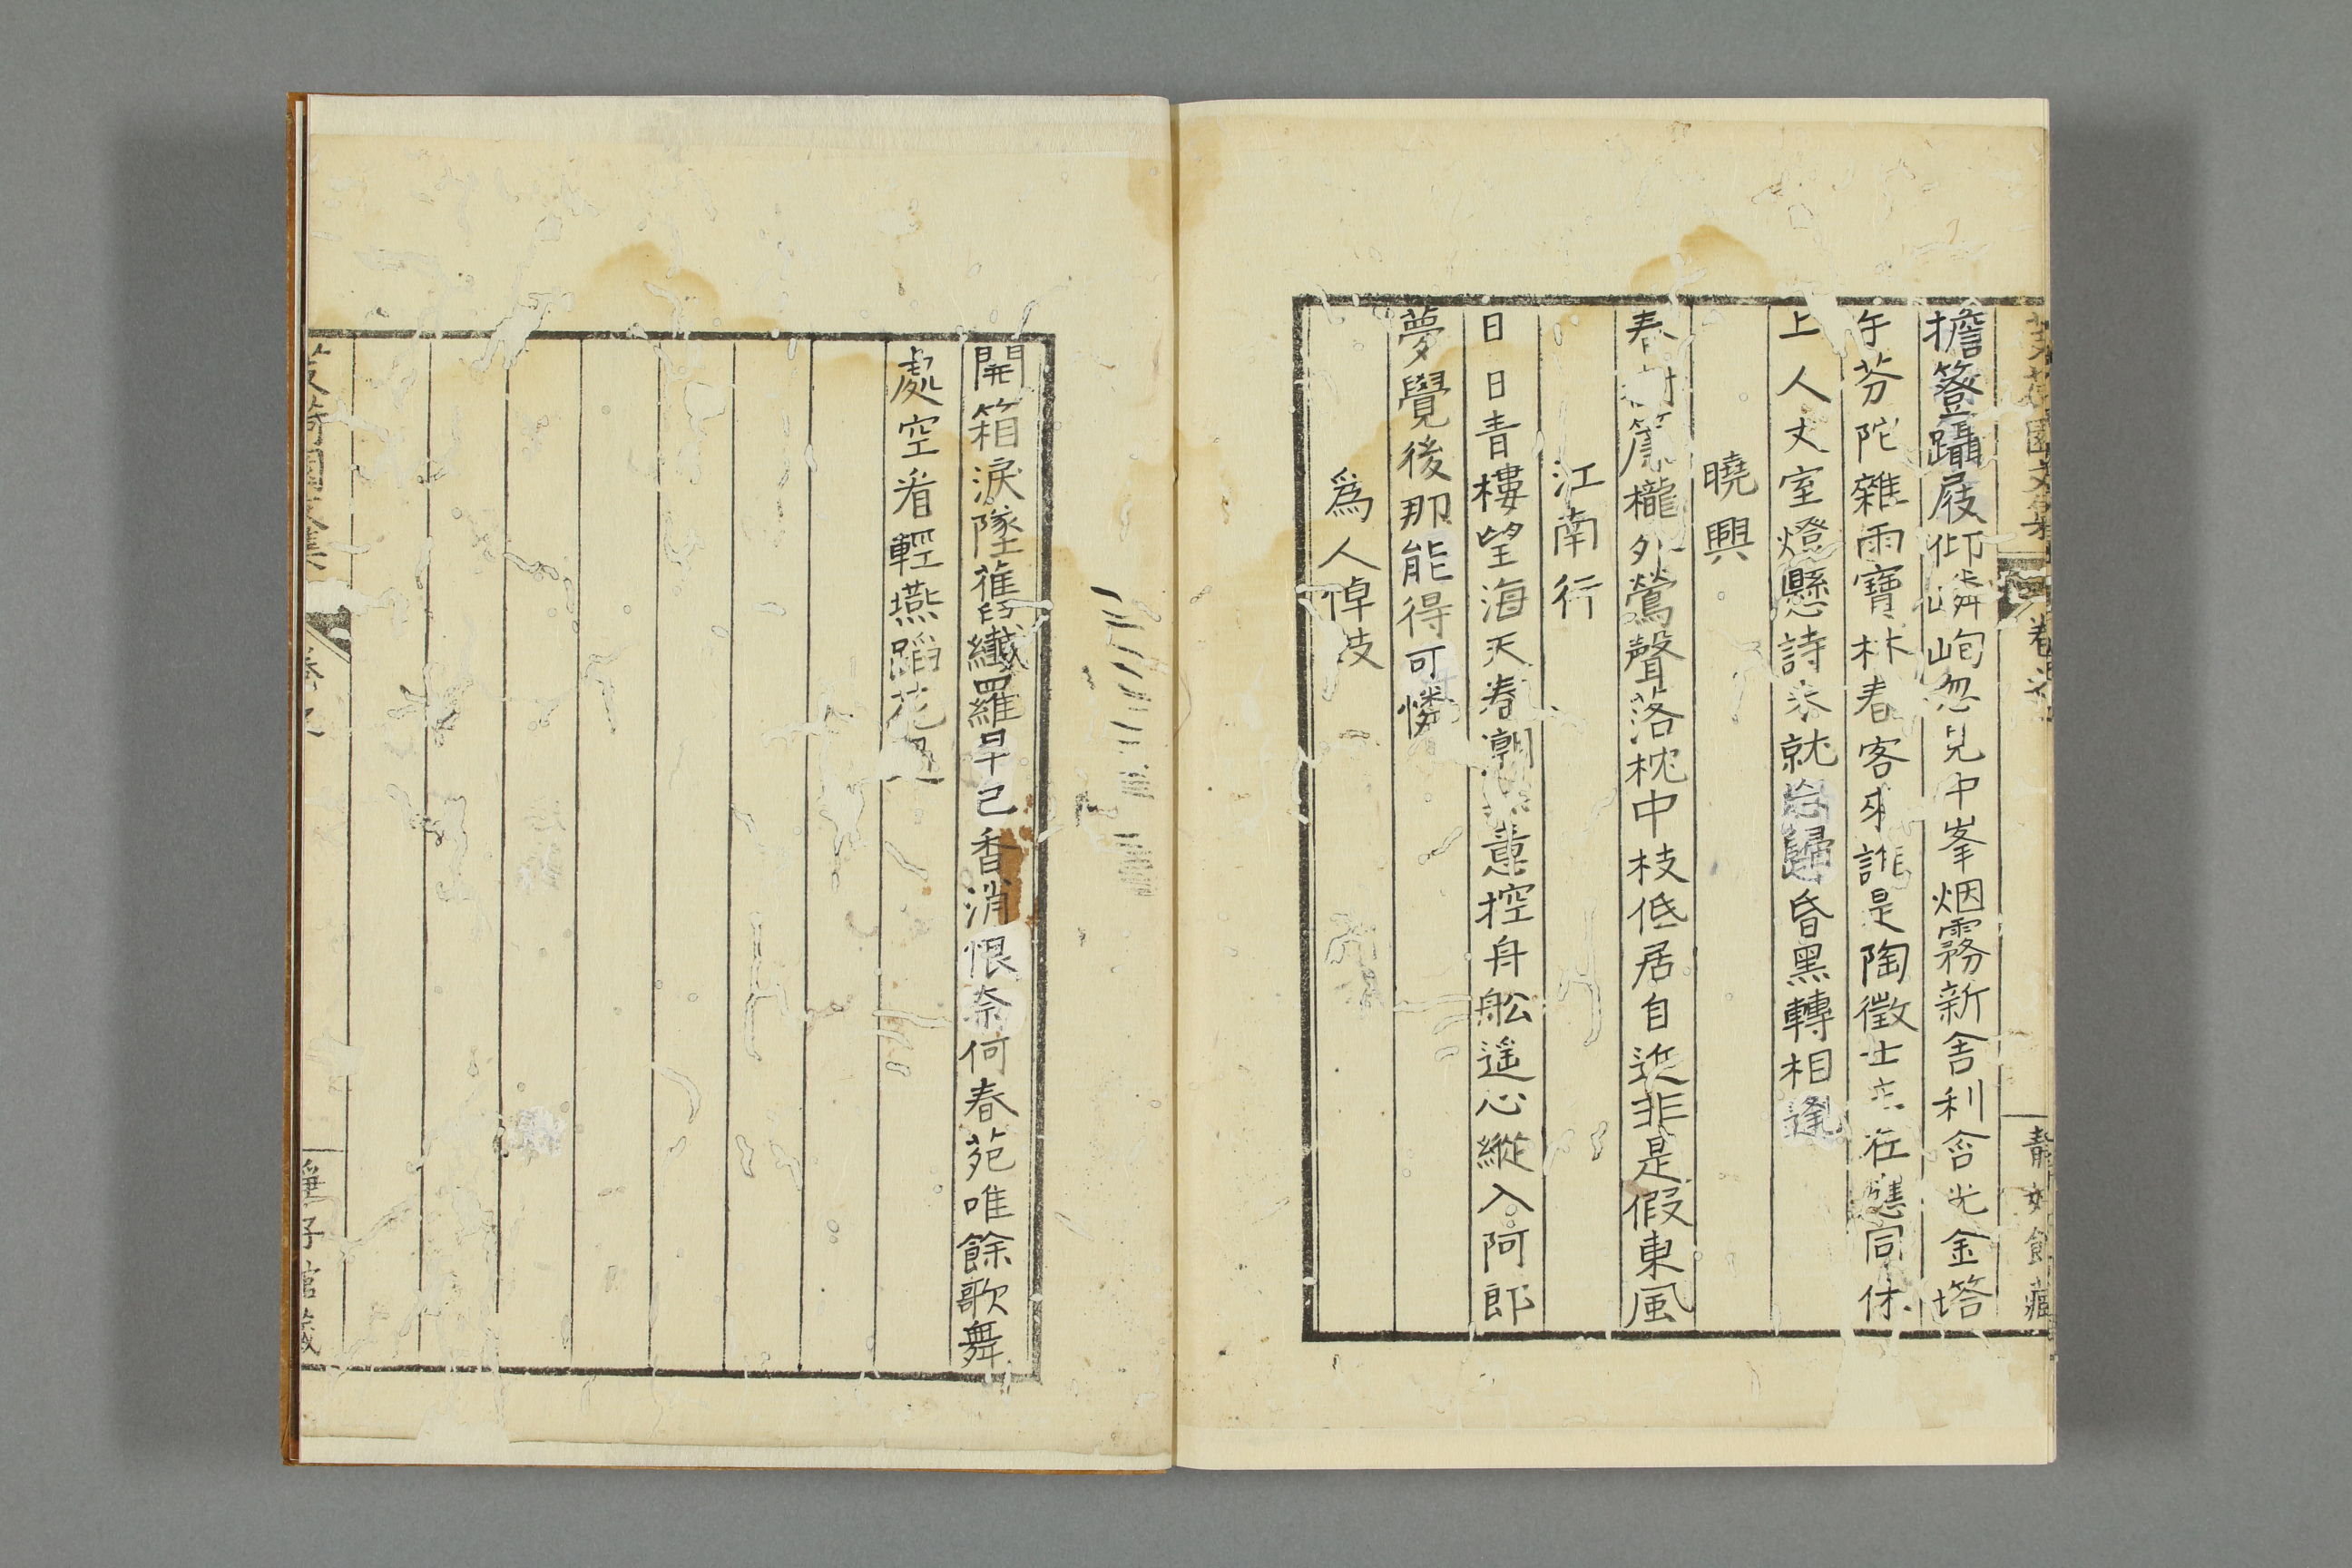 擔簦躡屐仰嶙峋忽見中峯烟霧新舍利含光金塔
午芬陀雜雨寶林春客來誰是陶徵士 在應同休
上人丈室燈懸詩未就 歸昏黑轉相逢
曉興
春樹簾櫳外鶯聲落枕中枝低居自近非是假東風
江南行
日日青樓望海天春潮 意控舟舩遥心縱入阿郎
夢覺後那能得可憐
爲人悼妓
開箱淚墜舊纖羅早已香消恨奈何春苑唯餘歌舞
處空看輕燕蹈花過